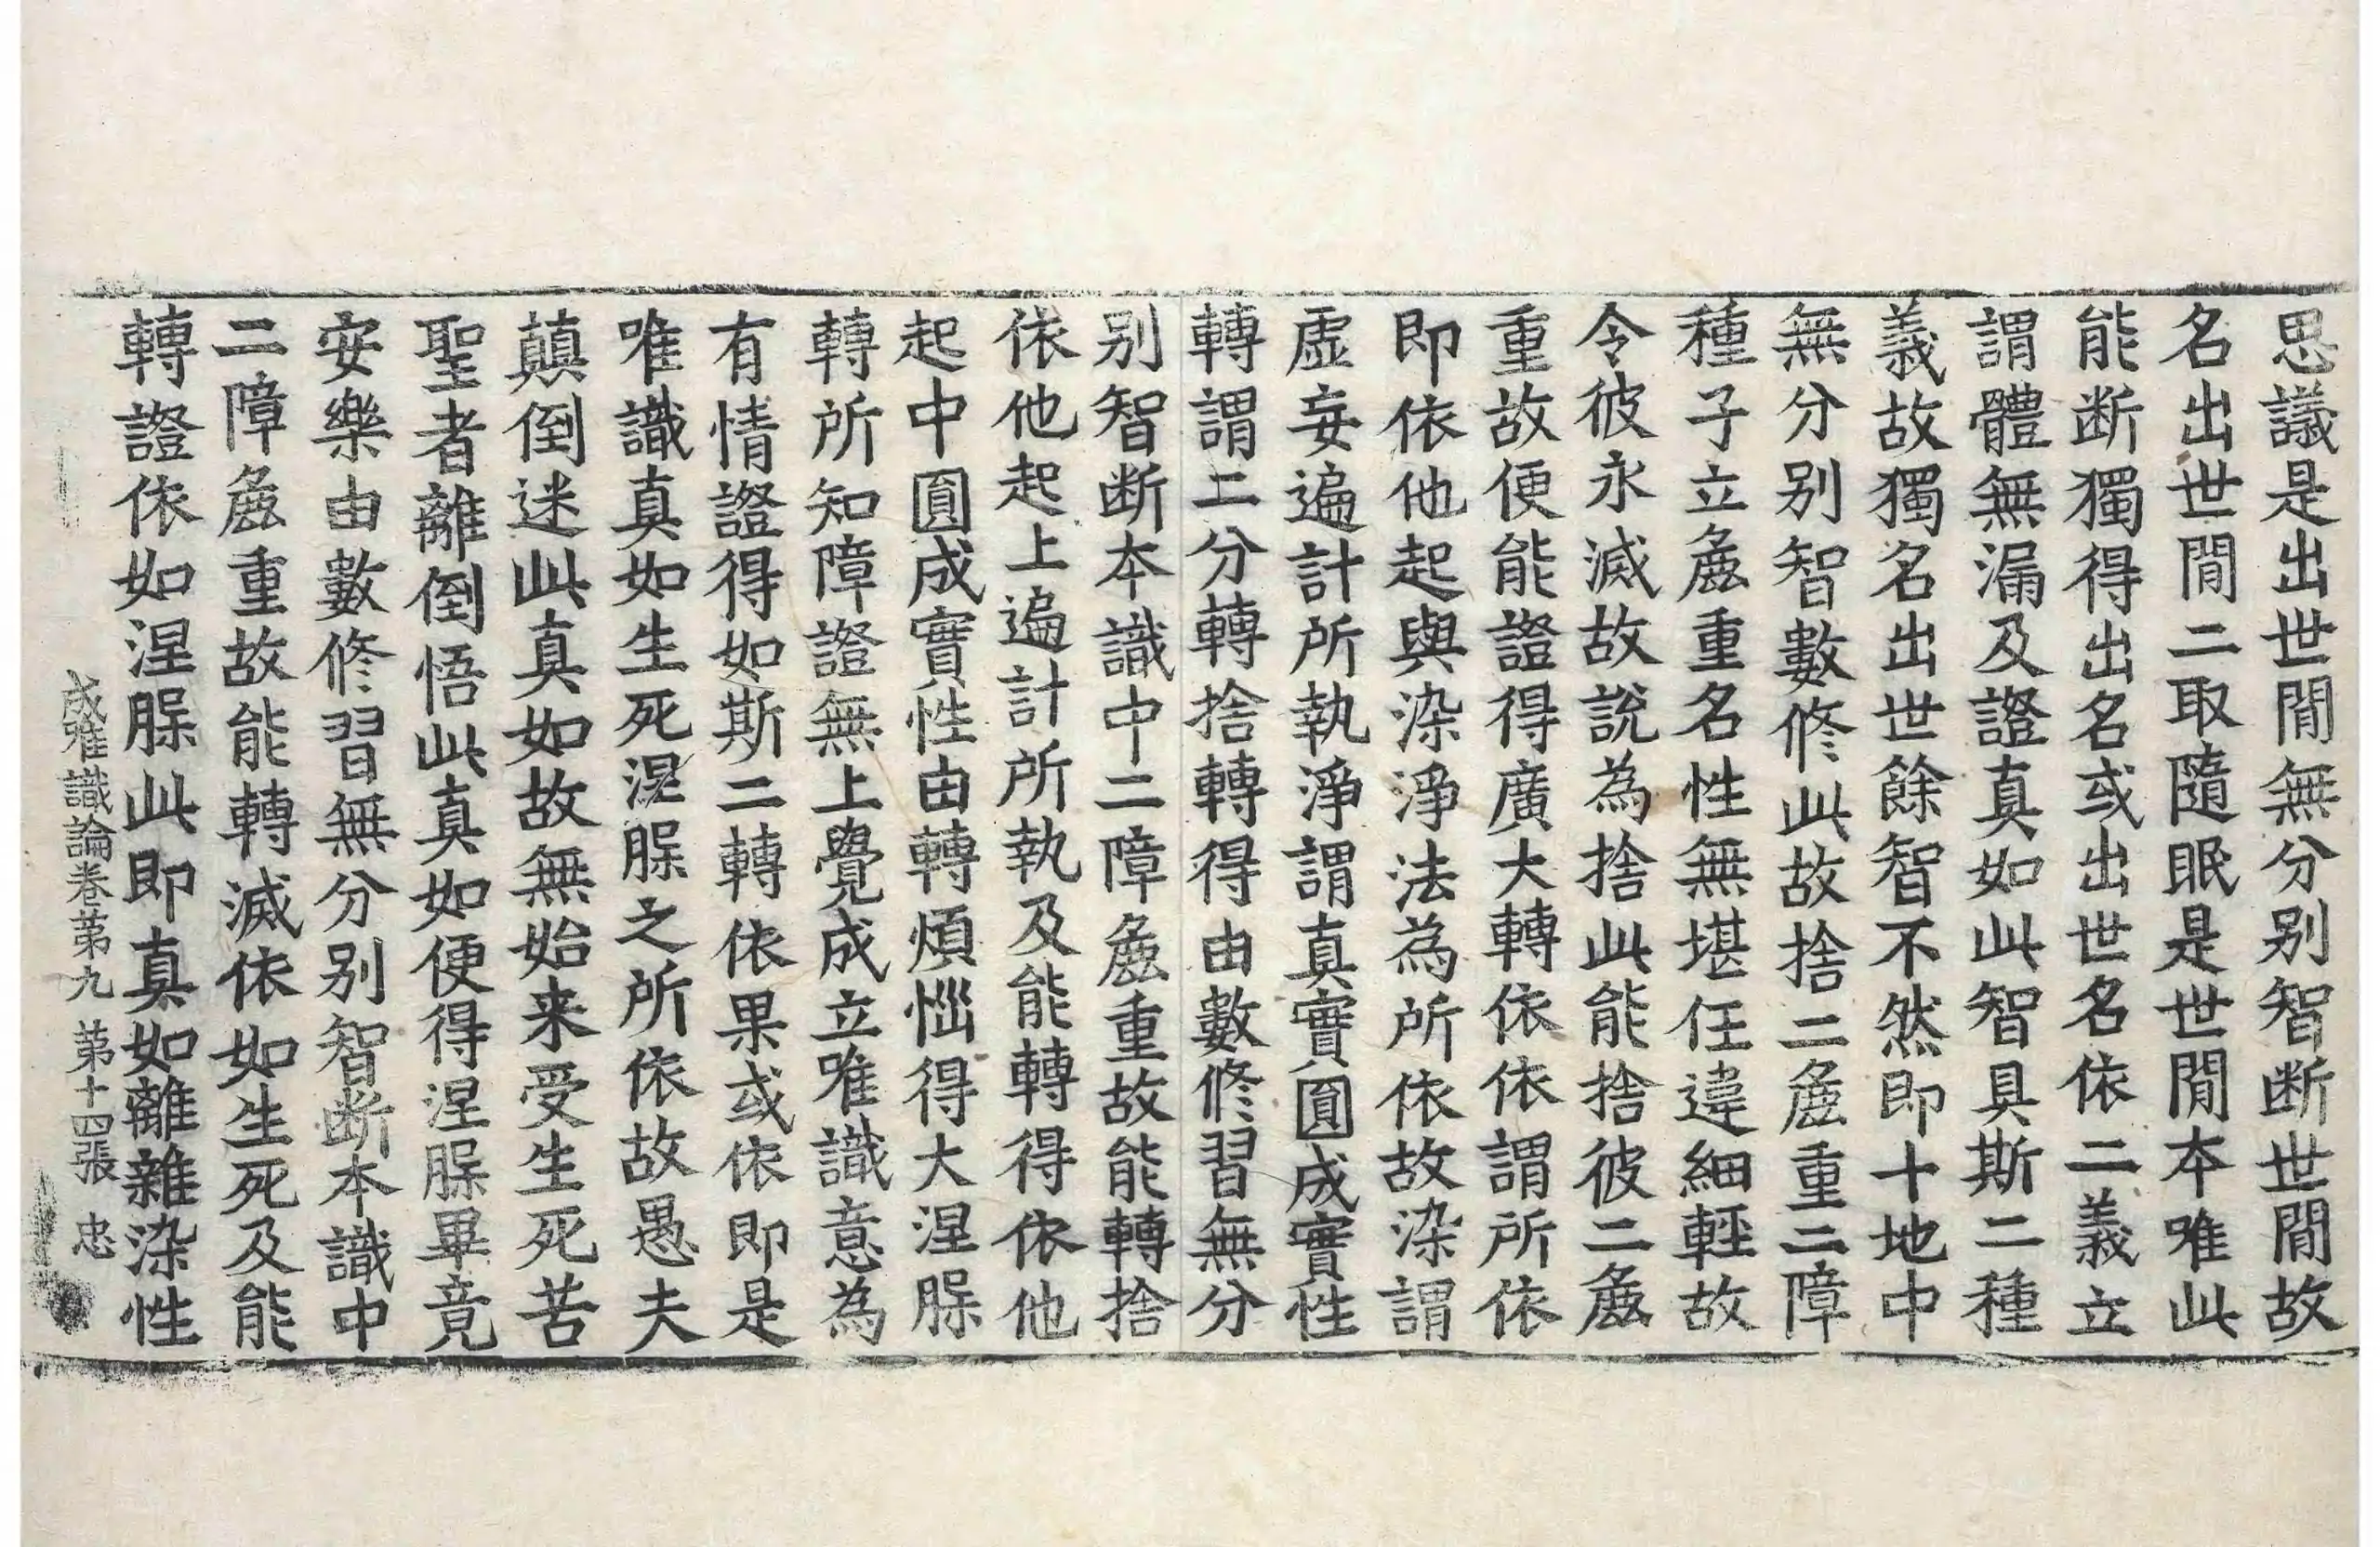 思議是出世閒無分别智断世閒故
名出世閒二取隨眠是世閒本唯此
能断獨得出名或出世名依二義立
謂體無漏及證真如此智具斯二種
義故獨名出世餘智不然即十地中
無分别智數修此故捨二麁重二障
種子立麁重名性無堪任違細輕故
令彼永滅故說為捨此能捨彼二麁
重故便能證得廣大轉依依謂所依
即依他起與染淨法為所依故染謂
虛妄遍計所執淨謂真實圓成實性
轉謂二分轉捨轉得由數修習無分
别智断本識中二障麁重故能轉捨
依他起上遍計所執及能轉得依他
起中圓成實性由轉煩惱得大涅槃
轉所知障證無上覺成立唯識意為
有情證得如斯二轉依果或依即是
唯識真如生死涅槃之所依故愚夫
顛倒迷此真如故無始来受生死苦
聖者離倒悟此真如便得涅槃畢竟
安樂由數修習無分别智断本識中
二障麁重故能轉滅依如生死及能
轉證依如涅槃此即真如離雜染性
成唯識論卷苐九 苐十四張 忠